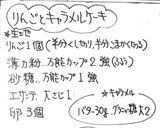 りんごとキャラメルケーキ
*生地
りんご1個(半分くし切り,半分こまかく切る)
薄力粉.万能カップ2強(ふるう)
砂糖.万能カップ1強
エッセンス 大さじ1
卵3個
*キャラメル
バター30g.グラニュー糖大2